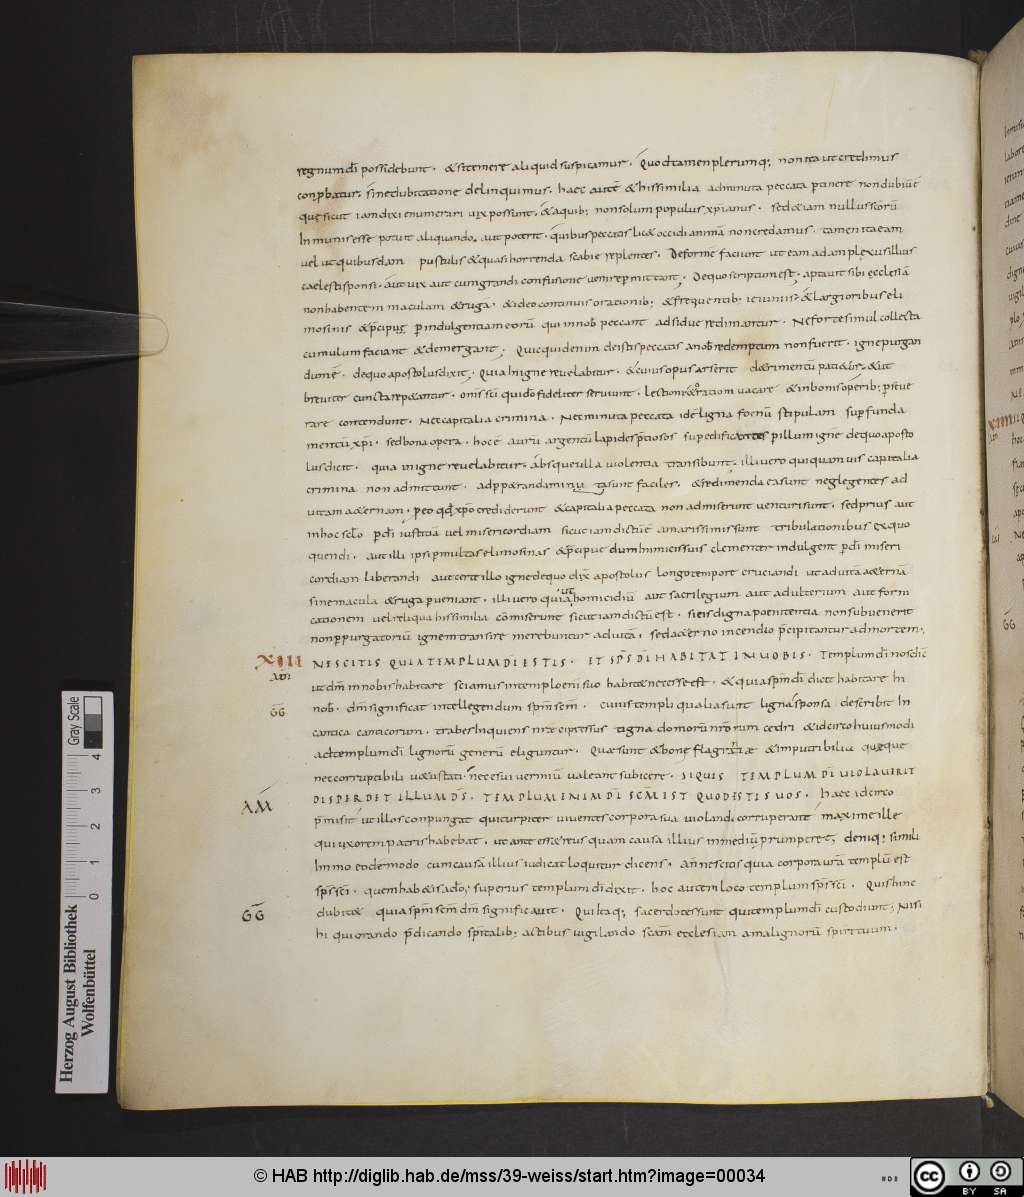 regnum dī possidebunt · & si temere aliquid suspicamur · Quod tamen plerumq; non ita ut credimus
conp̄batur, sine dubitatione delinquimus · haec autē & his similia ad minuta peccata p̄tinere non dubiū ē
quę sicut iam dixi enumerari uix possunt, & a quib; non solum populus xp̄ianus · sed & iam nullus scōrū
Inmunis esse potuit aliquando, aut poterit · quibus peccatis lic& occidi animā non credamus · tamen ita eam
uel ut quibusdam pustulis & quasi horrenda scabie replentes · deformē faciunt ut eam ad amplexus illius
caelestis sponsi · aut uix aut cum grandi confusione uenire p̄mittant, de quo scriptum est, aptauit sibi ęcclesiā
non habentem maculam & ruga · & ideo continuis orationib; & frequentib; ieiuniis · & largioribus eli
mosinis & p̄cipuę p̄ indulgentiam eorū qui in nob̄ peccant adsidue redimantur · Ne forte simul collecta
cumulum faciant & demergant, Quicquid enim de istis peccatis a nob̄ redemptum non fuerit · igne purgan
dum ē · de quo apostolus dixit, quia In igne reuelabitur · & cuius opus arserit d&rimentū pati&ur, & ut
breuiter cuncta rep&antur · om̄s sc̄i qui dō fideliter seruiunt · lectioni & orationi uacare & in bonis operib; p̄seue
rare contendunt · Nec capitalia crimina · Nec minuta peccata id ē ligna foenū stipulam sup̄ funda
mentū xp̄i · sed bona opera · hoc ē aurū argentū lapides p̄tiosos sup̄edificantes p̄ illum ignē de quo aposto
lus dicit · quia in igne reuelabitur, absque ulla uiolentia transibunt, illi uero qui quamuis capitalia
crimina non admittunt · ad p̄p&randa minuta sunt faciles, & redimenda casunt neglegentes ad
uitam a&ernam, p̄ eo qd̄ xp̄o crediderunt & capitalia peccata non admiserunt uenturi sunt, sed prius aut
in hoc sc̄lo p̄ dī iustitiā uel misericordiam sicut iam dictū ē amarissimis sunt tribulationibus exquo
quendi · aut illi ipsi p̄ multas elimosinas & p̄cipue dum Inimicis suis clementer indulgent p̄ dī miseri
cordiam liberandi aut certe illo igne de quo dix̄ apostolus longo tempore cruciandi ut ad uitā a&ernā
sine macula & ruga p̄ueniant, illi uero qui aut homicidiū aut sacrilegium aut adulterium aut forni
cationem uel reliqua his similia cōmiserunt sicut iam dictū est · si eis digna poenitentia non subuenerit
non p̄ purgatoriū ignem transire merebuntur ad uitā, sed a&erno incendio p̄cipitantur ad mortem,
XIII NESCITIS QUIA TEMPLUM DĪ ESTIS · ET SP̄S DĪ HABITAT IN UOBIS · Templum dī nos dic̄
ut dm̄ in nobis habitare sciamus in templo enī suo habit& necesse est, & quia sp̄m dī dicit habitare In
GG nob̄ · dm̄ significat intellegendum sp̄m sc̄m, cuius templi qualia sunt ligna sponsa describit In
cantica canticorum · trabes Inquiens nr̄ae cipressus tigna domorū nr̄orum cedri & idcirco huiusmodi
ad templum dī lignorū generū eliguntur, Quae sunt & bonę flagrantiae & imputribilia quęque
nec corruptibili u&ustati · nec esui uermiū ualeant subicere · SIQUIS TEMPLUM DĪ UIOLAUERIT
AM̄ DISPERDET ILLUM DS̄, TEMPLUM ENIM DĪ SC̄M IST QUOD ESTIS UOS, haec idcirco
p̄misit ut illos conpungat qui turpiter uiuentes corpora sua uiolando corruperant maxime ille
qui uxorem patris habebat, ut ante esse& reus quam causa illius in mediū prumperet, deniq; simili
Immo eodem modo cum causā illius iudicat loquitur dicens, An nescitis quia corpora urā templū est
sp̄s sc̄i, quem hab&is a dō, superius templum dī dixit, hoc autem loco templum sp̄s sc̄i, Quis hinc
GG dubit& quia sp̄m sc̄m dm̄ significauit, Qui itaq; sacerdotes sunt qui templum dī custodiunt, Nisi
hi qui grando p̄dicando sp̄italib; actibus uigilando sc̄am ecclesiam a malignorū spirituum,
Gray Scale
0 1 2 3 4
Herzog August Bibliothek
Wolfenbüttel
© HAB http://diglib.hab.de/mss/39-weiss/start.htm?image=00034
cc BY SA